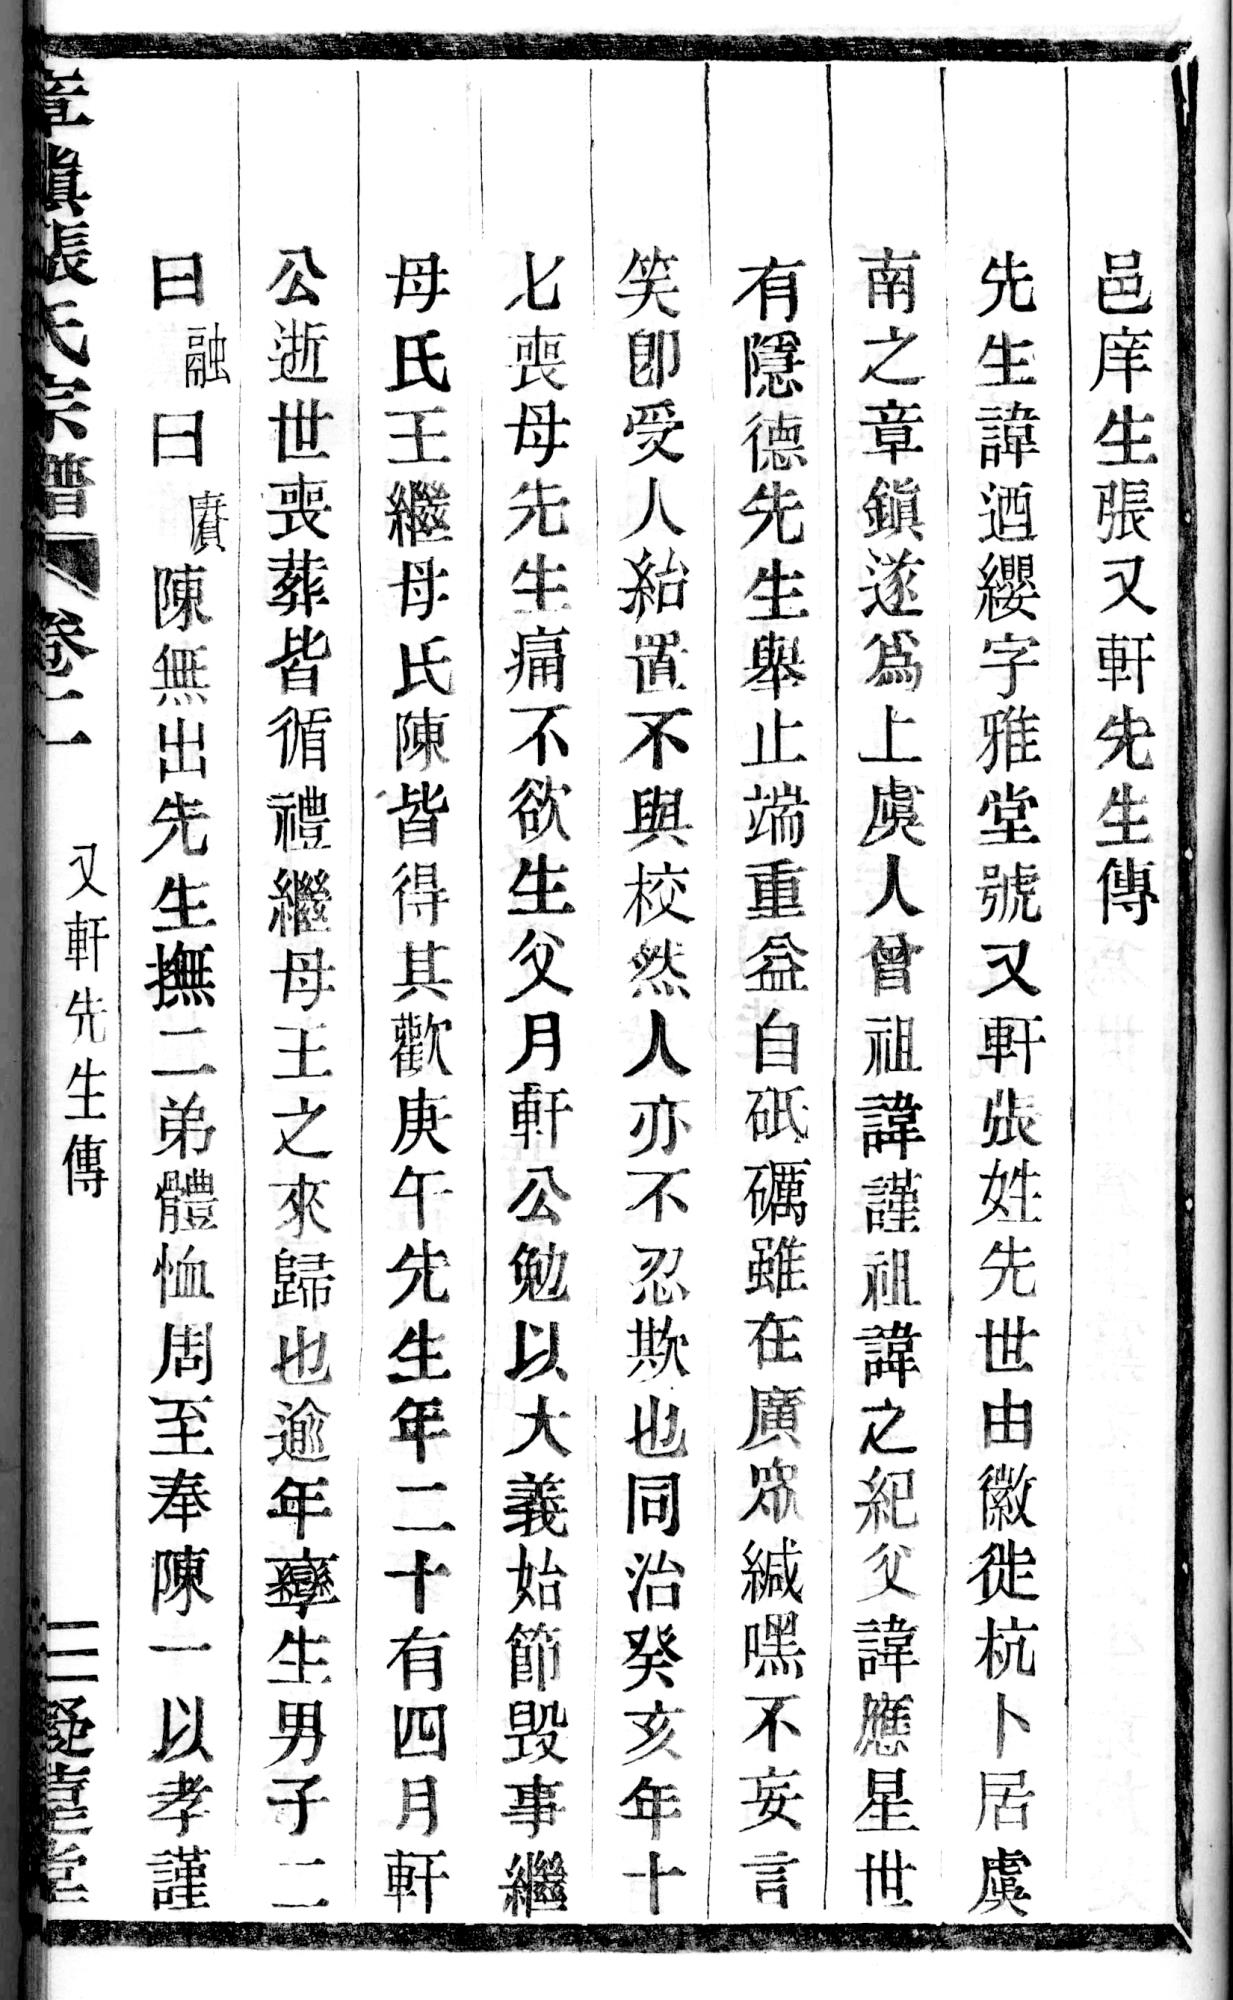 邑庠生張又軒先生傳
先生諱迺纓字雅堂號又軒張姓先世由徽徙杭卜居虞
南之章鎮遂爲上虞人曾祖諱謹祖諱之紀父諱應星世
有隱德先生舉止端重益自砥礪雖在廣眾緘嘿不妄言
笑卽受人紿置不與校然人亦不忍欺也同治癸亥年十
七喪母先生痛不欲生父月軒公勉以大義始節毀事繼
母氏王繼母氏陳皆得其歡庚午先生年二十有四月軒
公逝世喪葬皆循禮繼母王之來歸也逾年孿生男子二
曰融曰賡陳無出先生撫二弟體恤周至奉陳一以孝謹
章鎮張氏宗譜 卷二 又軒先生傳 三 堂